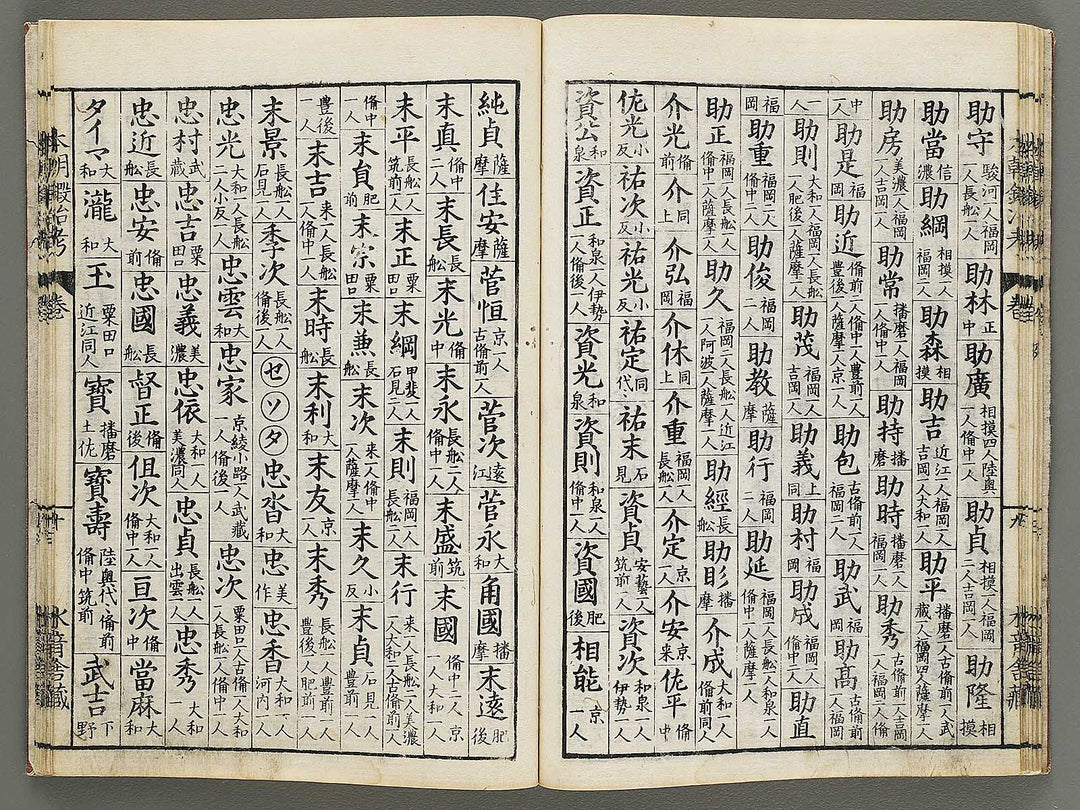 助守 駿河一人福岡一人長舩一人 助林 正中 助廣 相摸四人陸奥一人備中一人 助貞 相摸一人福岡二人吉岡一人 助隆 相摸
助當 信濃 助綱 相摸一人福岡二人 助森 相摸 助吉 近江一人福岡一人吉岡一人大和一人 助平 播磨二人古備前一人武藏一人福岡四人薩摩一人
助房 美濃一人福岡一人吉岡一人 助常 播磨一人福岡一人備中一人 助持 播磨 助時 播磨一人吉岡一人福岡一人 助秀 古備前一人吉岡一人福岡二人備
中一人 助是 福岡 助近 備前一人備中一人豊前一人豊後一人薩摩一人京一人 助包 古備前二人福岡二人 助武 福岡 助髙 古備前一人備前一人福岡
一人 助則 大和一人福岡一人肥後一人薩摩二人 助茂 福岡一人吉岡一人 助義 上同 助村 福岡 助成 福岡一人備中一人 助直
福岡 助重 福岡二人備中二人 助俊 福岡二人 助教 薩摩 助行 福岡二人 助延 福岡一人長舩一人備中一人薩摩一人
助正 福岡一人長舩一人備中一人薩摩一人 助久 福岡二人長舩一人近江一人阿波一人薩摩一人 助經 長舩 助㣋 播摩 介成 大和一人和泉一人備前同人
介光 備前 介上 同 介弘 福岡 介休 上同 介重 福岡一人長舩一人 介定 京一人備中一人 介安 京来 佐平 備中
佐光 小反 祐次 小反 祐光 小反 祐定 同代々 祐末 石見 資貞 安藝一人筑前一人 資次 和泉一人伊勢一人
資公 和泉 資正 和泉一人伊勢一人備後一人 資光 和泉 資則 和泉二人備中一人 資國 肥後 相能 京一人
純貞 薩摩 佳安 薩摩 菅恒 京一人古備前一人 菅次 遠江 菅永 大和 角國 播摩 末遠 肥後
末真 備中二人 末長 長舩 末光 備中 末永 長舩二人備中一人 末盛 筑前 末國 備中二人京一人大和一人
末平 備中一人筑前一人 末正 粟田口 末綱 甲斐一人石見二人 末則 福岡一人長舩一人 末行 来一人長舩二人美濃一人大和一人古備前一人
備中一人 末貞 肥前 末宗 粟田口 末兼 長舩 末次 来一人備中一人薩摩一人 末久 小反 末貞 石見一人豊前一人
豊後一人 末吉 来一人長舩一人備中一人 末時 長舩 末利 大和 末友 京二人 末秀 長舩一人豊前一人豊後一人肥前一人
末景 長舩一人石見一人 季次 長舩一人備後一人 セソタ 忠沓 大和 忠 美作 忠香 大和一人河内一人
忠光 大和一人長舩二人小反一人 忠雲 大和 忠家 京綾小路一人武藏一人備後一人 忠次 粟田口一人古備前一人大和一人長舩一人備中一人
忠村 武藏 忠吉 粟田口 忠義 美濃 忠依 大和一人美濃同人 忠貞 長舩一人出雲一人 忠秀 大和一人
忠近 長舩 忠安 備前 忠國 長舩 督正 備後 但次 大和一人備中一人 亘次 備中 當麻 大和
タイマ 大和 瀧 大和 玉 粟田口近江同人 寳 播磨土佐 寳壽 陸奥代々備前備中筑前 武吉 下野
本朝鍛冶考 卷
十
水音舎藏